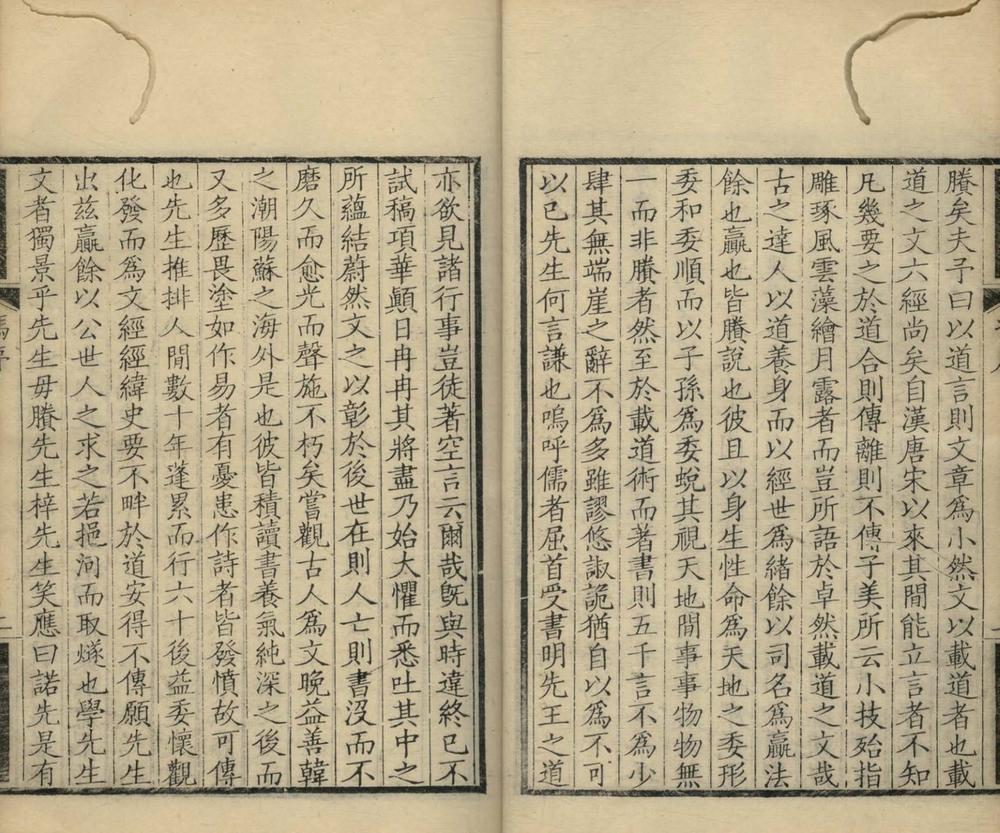 賸矣夫子曰以道言則文章爲小然文以載道者也載
道之文六經尚矣自漢唐宋以來其閒能立言者不知
凡幾要之於道合則傳離則不傳子美所云小技殆指
雕琢風雲藻繪月露者而豈所語於卓然載道之文哉
古之達人以道養身而以經世爲緒餘以司名爲贏法
餘也贏也皆賸說也彼且以身生性命爲天地之委形
委和委順而以子孫爲委蛻其視天地閒事事物物無
一而非賸者然至於載道術而著書則五千言不爲少
肆其無端崖之辭不爲多雖謬悠諔詭猶自以爲不可
以已先生何言謙也嗚呼儒者屈首受書明先王之道
亦欲見諸行事豈徒著空言云爾哉旣與時違終已不
試稿項華顚日冉冉其將盡乃始大懼而悉吐其中之
所蘊結蔚然文之以彰於後世在則人亡則書沒而不
磨久而愈光而聲施不朽矣嘗觀古人爲文晚益善韓
之潮陽蘇之海外是也彼皆積讀書養氣純深之後而
又多歷畏塗如作易者有憂患作詩者皆發憤故可傳
也先生推排人閒數十年蓬累而行六十後益委懷觀
化發而爲文經經緯史要不畔於道安得不傳願先生
出茲贏餘以公世人之求之若挹河而取燧也學先生
文者獨景乎先生毋賸先生梓先生笑應曰諾先是有
二